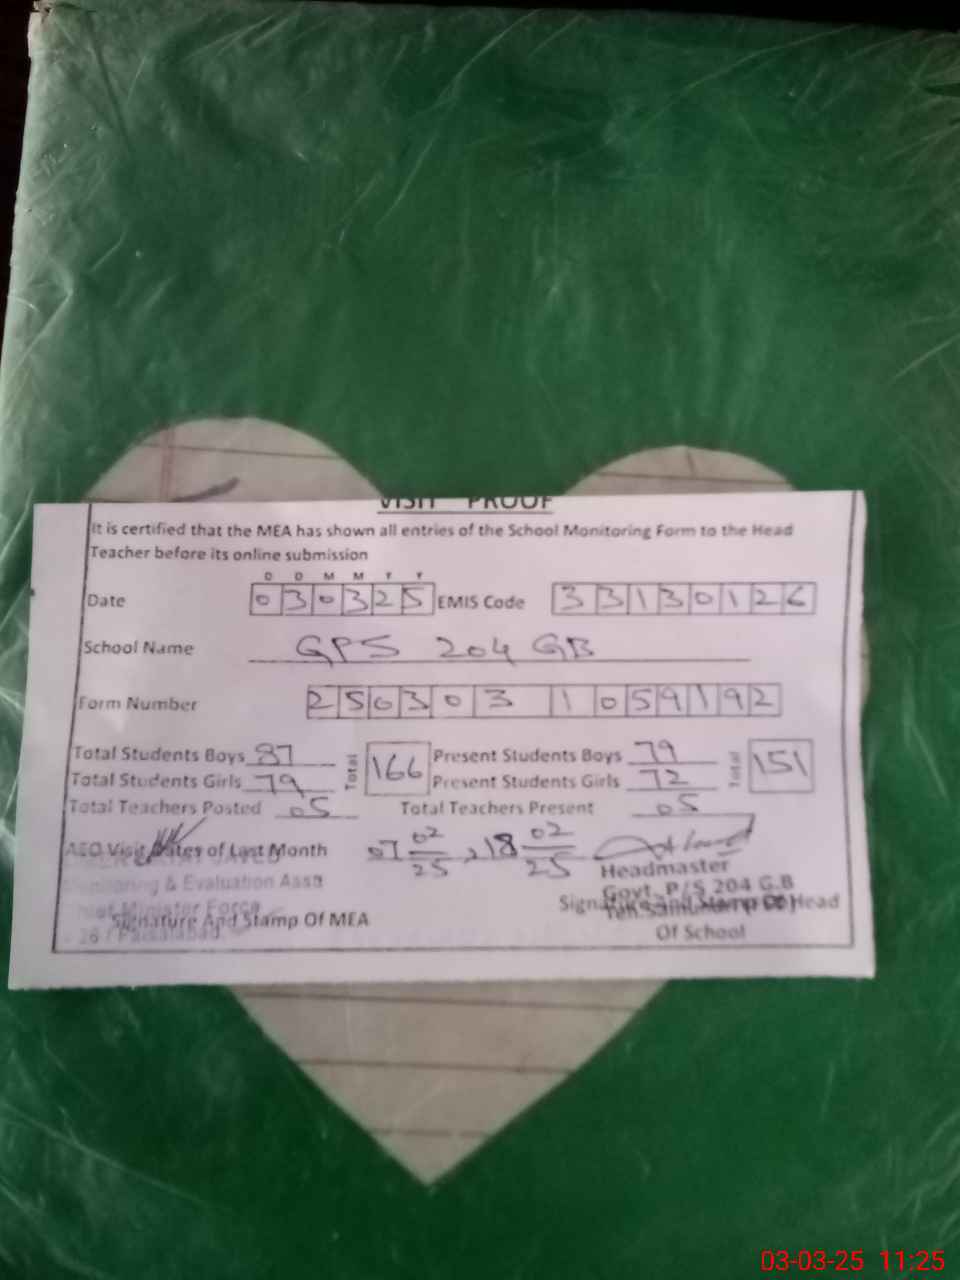 VISIT PROOF
It is certified that the MEA has shown all entries of the School Monitoring Form to the Head
Teacher before its online submission
D D M M Y Y
Date 030325 EMIS Code 33130126
School Name GPS 204 GB
Form Number 2503031059192
Total Students Boys 87 Total 166 Present Students Boys 79 Total 151
Total Students Girls 79 Present Students Girls 72
Total Teachers Posted 05 Total Teachers Present 05
AEO Visit Dates of Last Month 07 02/25, 18 02/25
Headmaster
Monitoring & Evaluation Assa
Govt. P/S 204 G.B
Chief Minister Force
Signature And Stamp Of MEA
Signature And Stamp Of Head
Of School
26 / Faisalabad
03-03-25 11:25